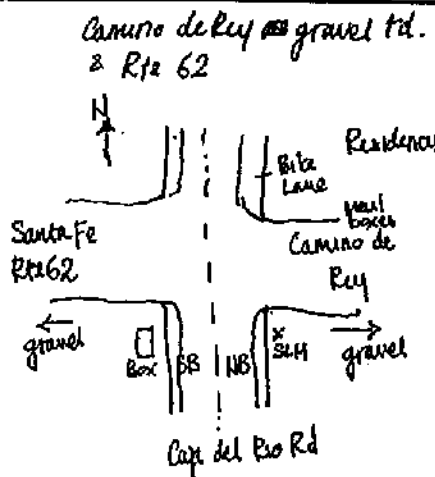 Camino de Rey gravel rd.
& Rte 62
N
Residences
Bike
Lane
mail
boxes
Santa Fe
Rte 62
Camino de
Rey
gravel
Box
SB
NB
x
SLM
gravel
Caja del Rio Rd